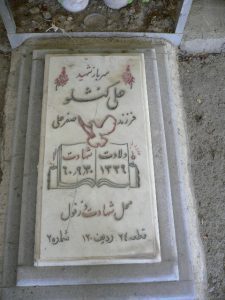 سرباز شهید
علی کنشلو
فرزند صفرعلی
ولادت شهادت
۱۳۳۹ ۶۰.۹.۳۰
محل شهادت دزفول
قطعه ۲۴ ردیف ۱۲۰
شماره ۲